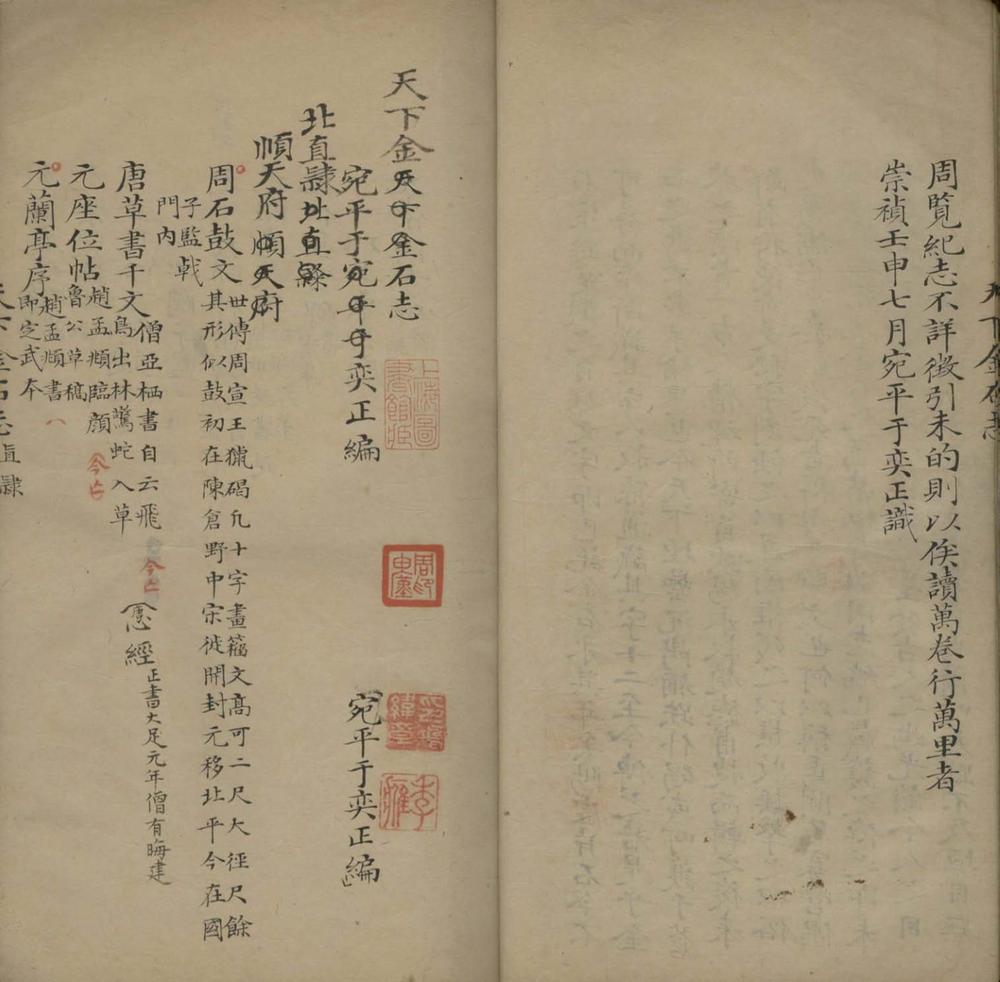 周覽紀志不詳徵引未的則以俟讀萬卷行萬里者
崇禎壬申七月宛平于奕正識
天下金石志
天下金天下金石志
宛平于宛平于奕正編
宛平于奕正編
北直隸北直隸
順天府順天府
周石鼓文
世傳周宣王獵碣凡十字畫籀文高可二尺大徑尺餘
其形似鼓初在陳倉野中宋徙開封元移北平今在國
子監戟
門內
唐草書千文
僧亞栖書自云飛
鳥出林驚蛇入草
今亡
心經
正書大足元年僧有晦建
元座位帖
趙孟頫臨顏
魯公草稿
今亡
元蘭亭序
趙孟頫書
即定武本
天下金石志
直隸
上海圖
書館藏